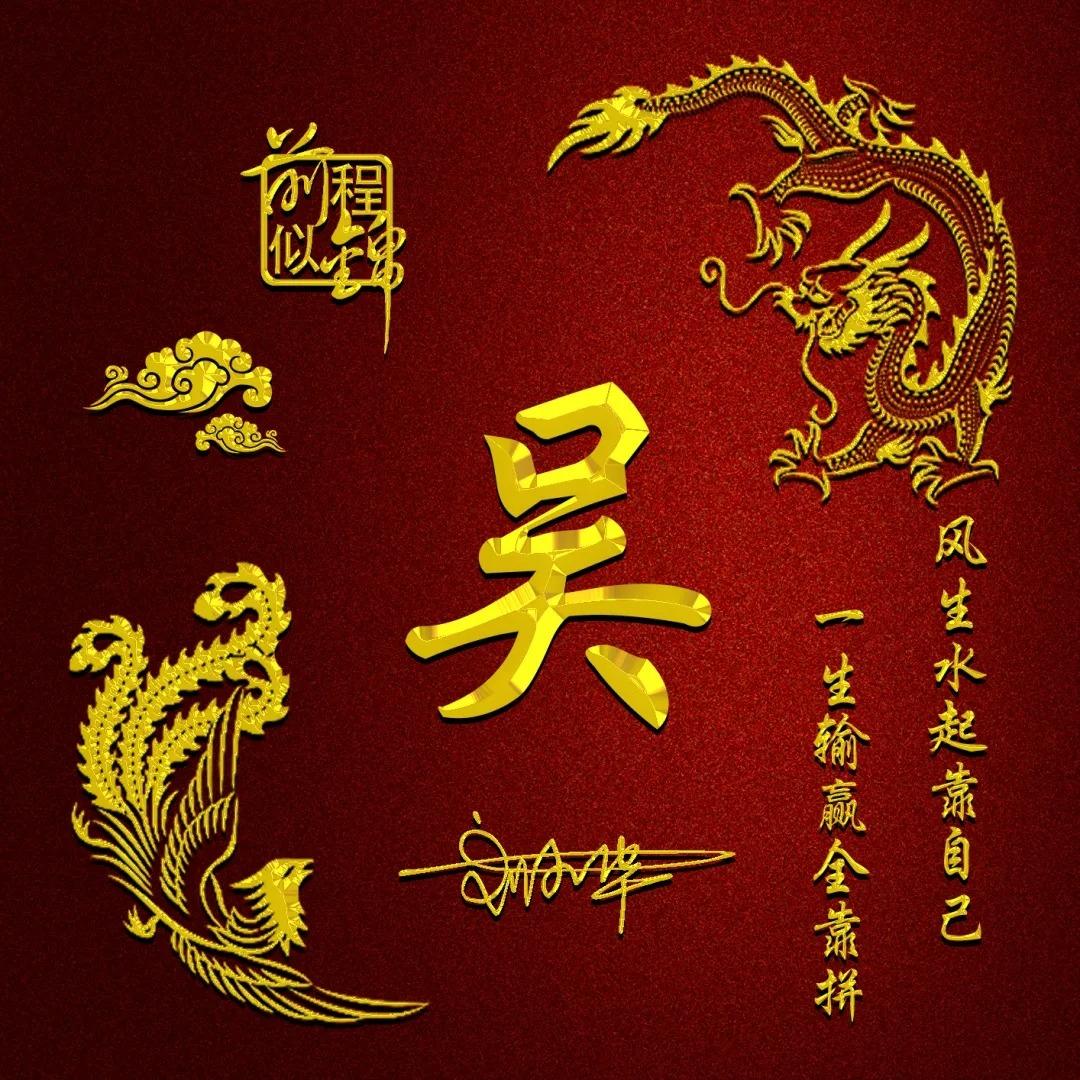 前程
似锦
吴
风生水起靠自己
一生输赢全靠拼